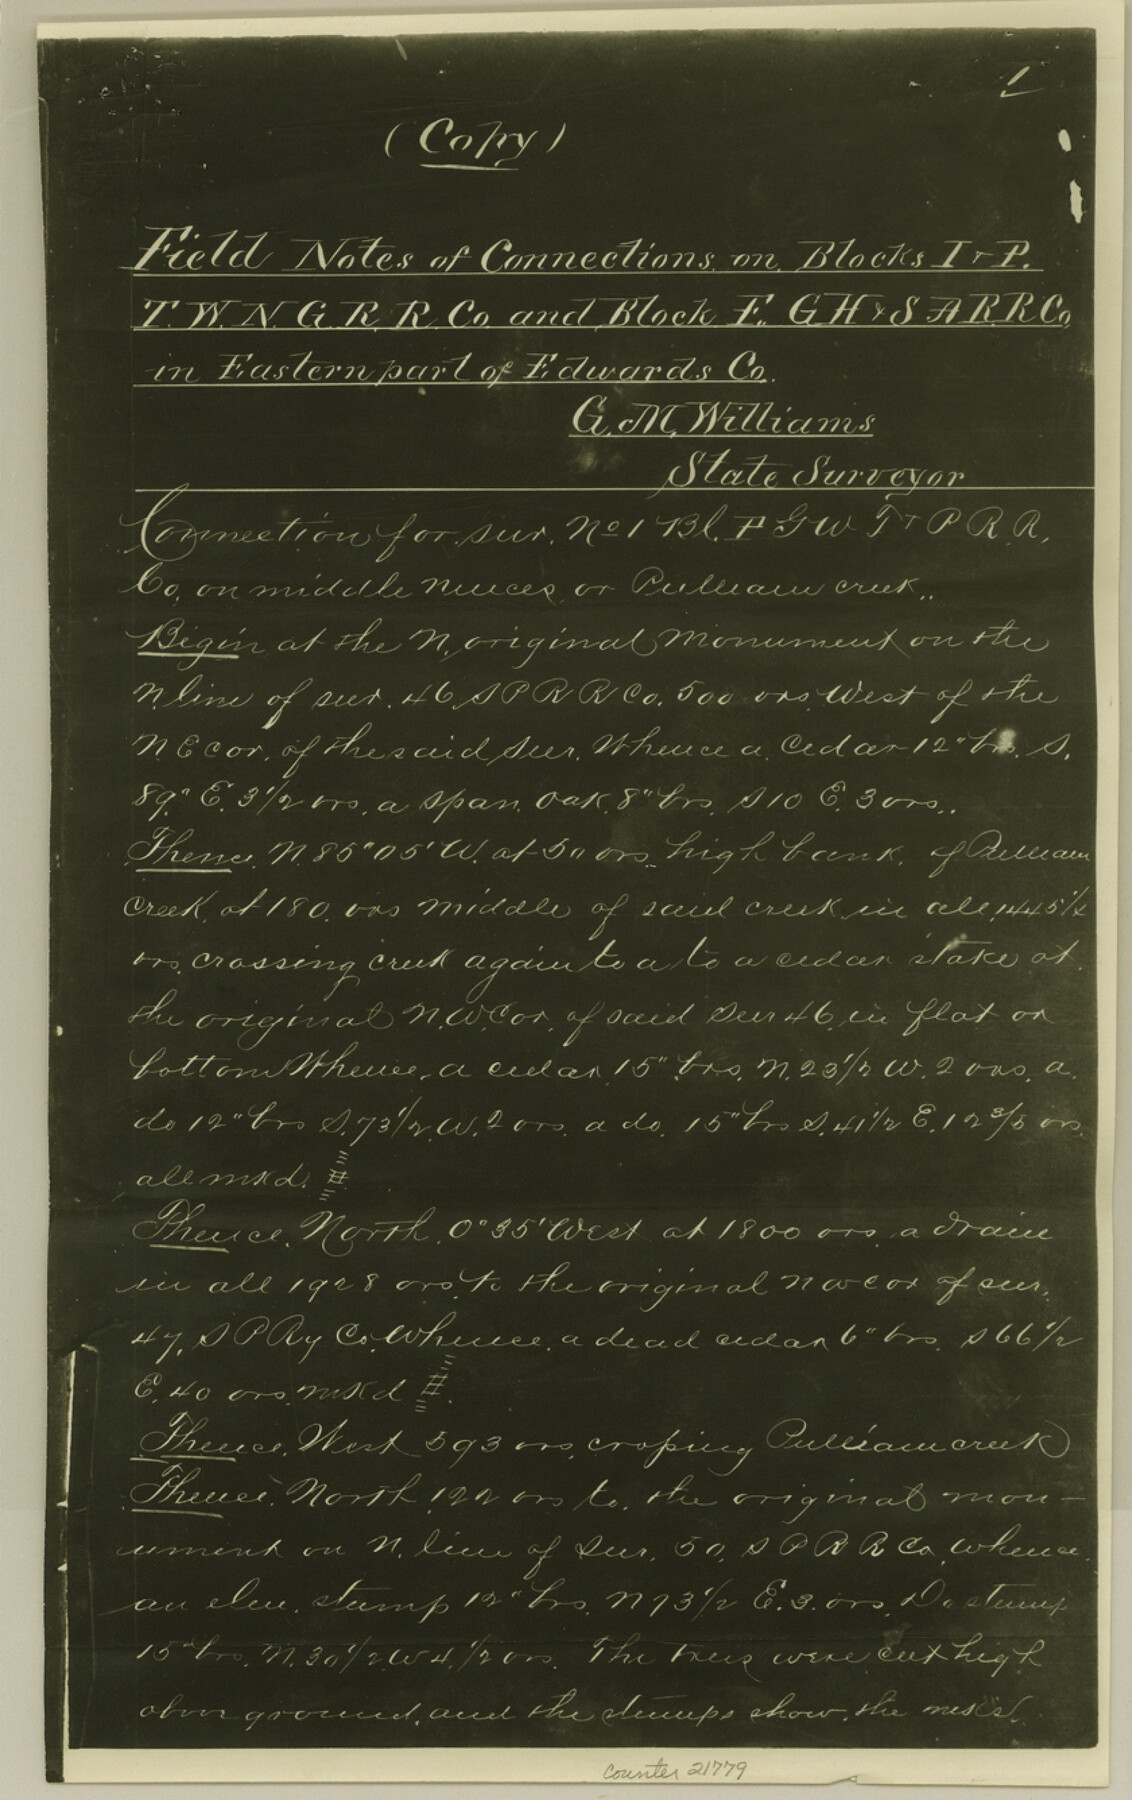 1
(Copy)
Field Notes of Connections on Blocks I & P.
T. W. N. G. R. R. Co. and Block F. G H & S A R.R. Co,
in Eastern part of Edwards Co.
G. M. Williams
State Surveyor
Connection for sur. No 1 Bl. P G W T & P R. R,
Co, on middle nueces or Pulliam creek..
Begin at the N, original Monument on the
N. line of sur. 46, S P R R Co, 500 vrs West of the
N. E cor, of the said sur. Whence a Cedar 12" brs. S.
89° E. 3 1/2 vrs, a span. oak 8" brs. S 10 E. 3 vrs..
Thence N. 85° 05' W. at 50 vrs high bank of Pulliam
creek, at 180 vrs middle of said creek in all 1445 1/4
vrs. crossing creek again to a to a cedar stake at
the original N. W. Cor, of said Sur 46, in flat or
bottom Whence, a cedar 15" brs. N. 23 1/2 W. 2 vrs. a.
do 12" brs S. 73 1/2 W. 2 vrs. a do. 15" brs S. 41 1/2 E. 12 3/5 vrs,
all mkd.
Thence, North 0° 35' West at 1800 vrs, a drain
in all 1928 vrs, to the original N w cor of sur.
47, S P Ry Co. Whence, a dead cedar 6" brs. S 66 1/2
E. 40 vrs. mkd
Thence, West 593 vrs, croping Pulliam creek
Thence, North 122 vrs to, the original mon-
ument on N. line of Sur, 50, S P R R Co, whence
an elm. stump 12" brs. N 73 1/2 E. 3. vrs. Do stump
15" brs. N. 30 1/2 W 4 1/2 vrs. The trees were cut high
above ground, and the stumps show, the mks.
counter 21779